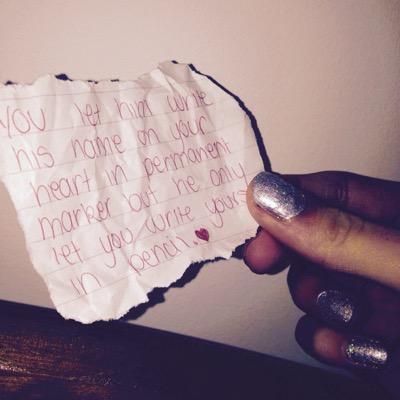 You let him write
his name on your
heart in permanent
marker but he only
let you write yours
in pencil.